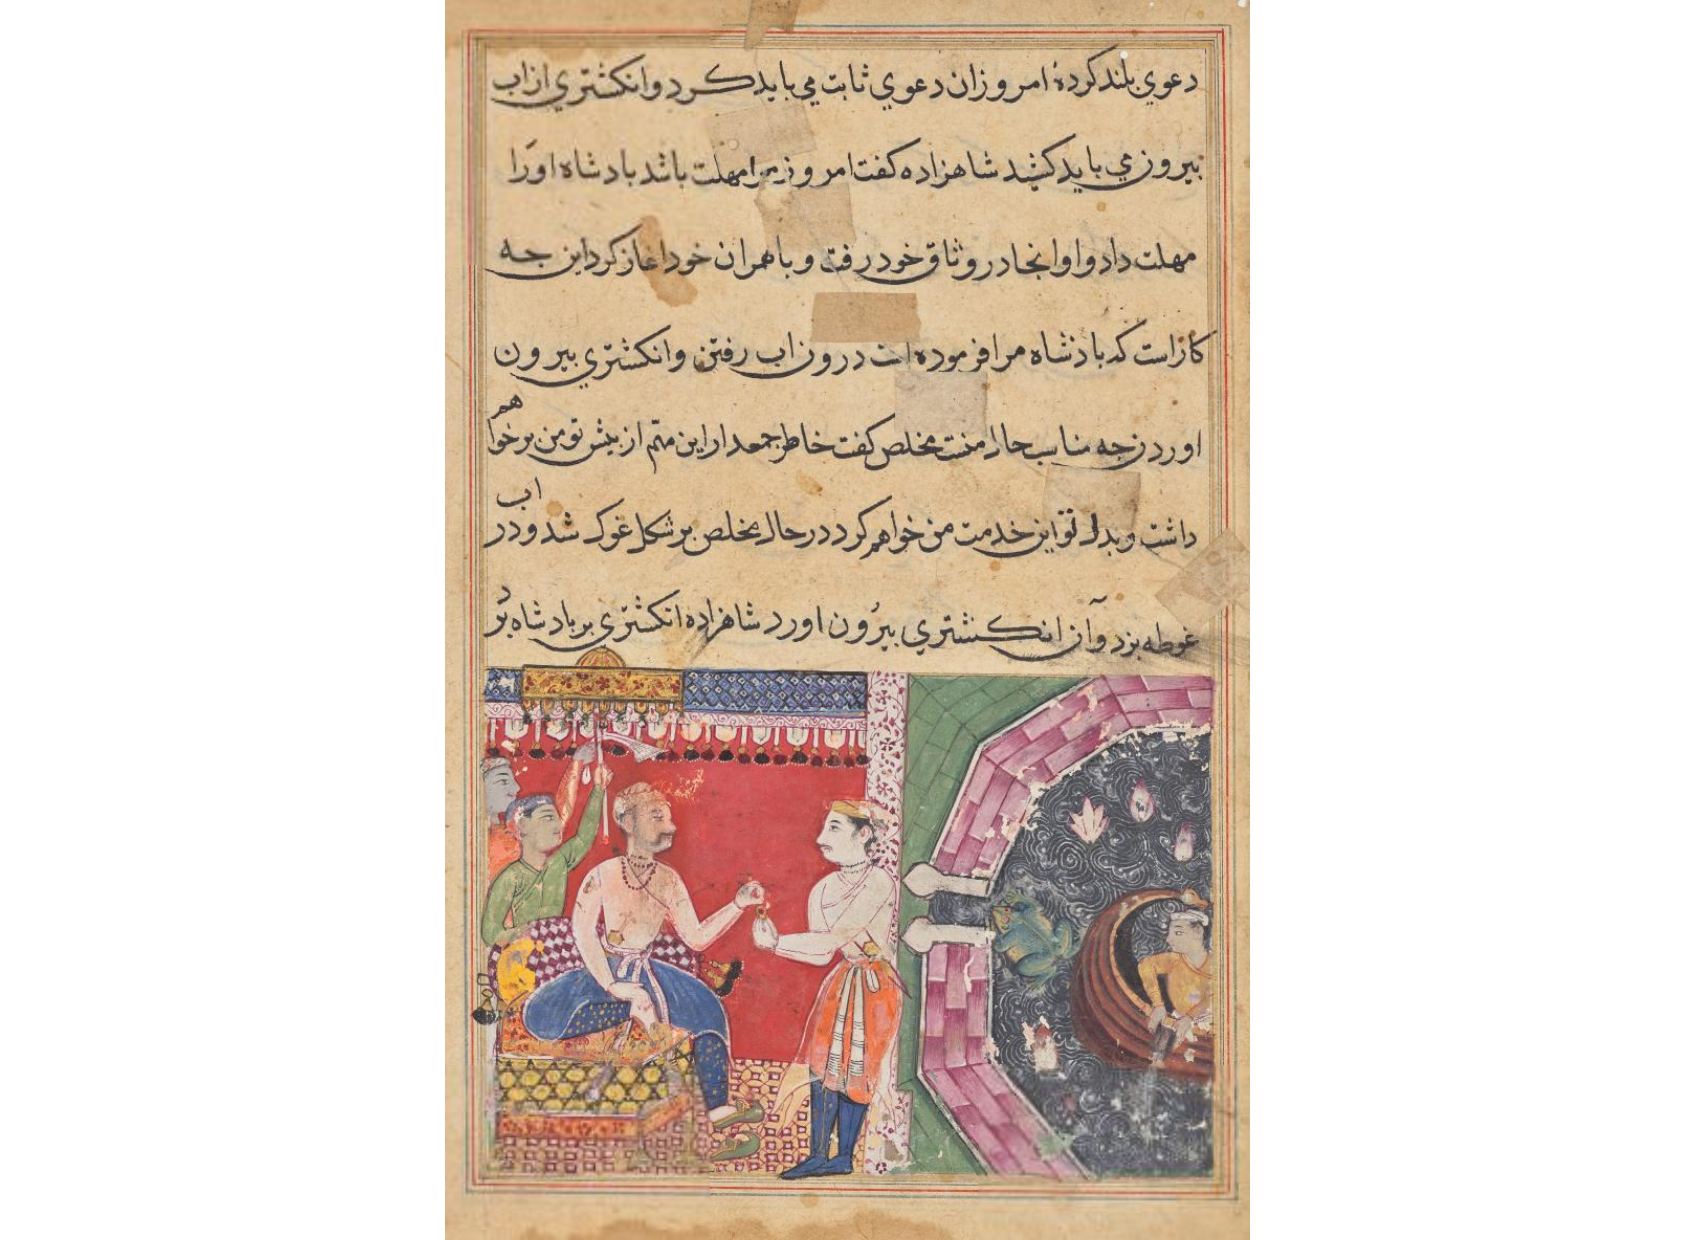 دعوي بلند کردهٔ امروز ان دعوي ثابت مي بايد کرد و انکشتري از اب
بيرون مي بايد کشيد شاهزاده کفت امروز مرا مهلت باشد بادشاه اورا
مهلت داد و او انجا در وثاق خود رفت و با همران خود اغاز کرد اين جه
کار است که بادشاه مرا فرموده است درون اب رفتن و انکشتري بيرون
اوردن جه مناسب حال منست مخلص کفت خاطر جمعدار اين مهّم از بيش تو من برخواهم
داشت و بدل تو اين خدمت من خواهم کرد در حال مخلص بر شکل غوک شد و در اب
غوطه بزد و آن انکشتري بيرُون اورد شاهزاده انکشتري بر بادشاه بُرد